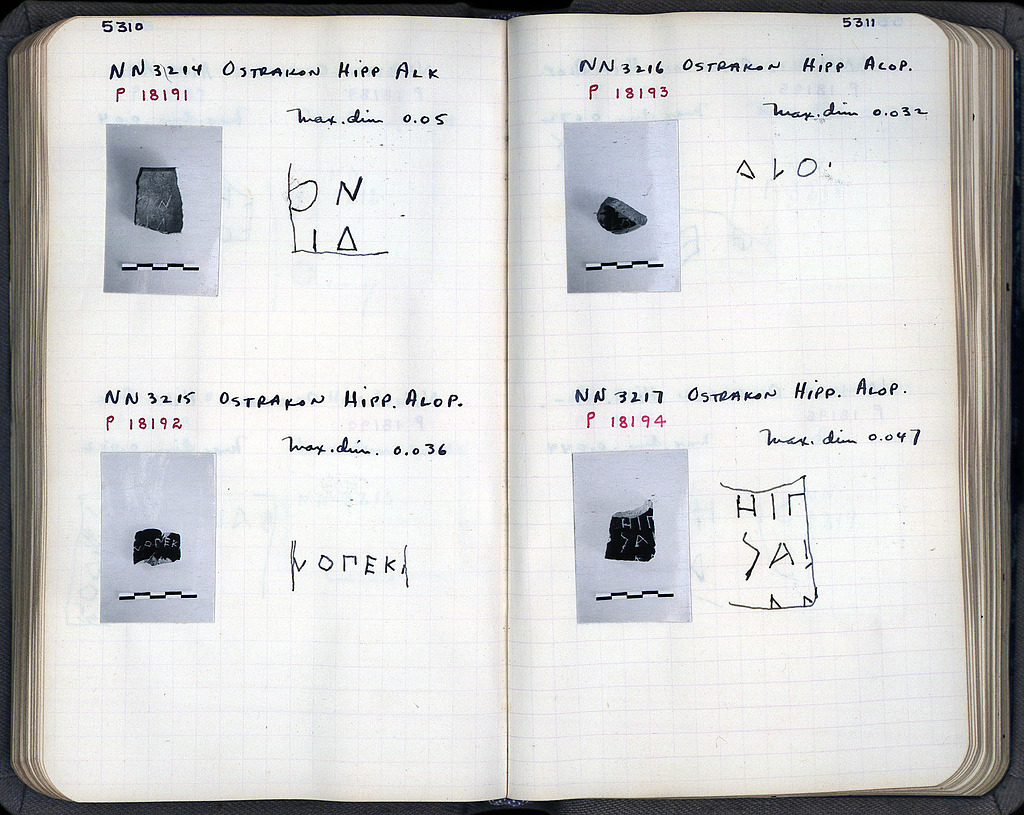 5310
NN 3214 OSTRAKON HIPP ALK
P 18191
Max. dim 0.05
ΟΝ
ΙΔ
NN 3215 OSTRAKON HIPP. ALOP.
P 18192
Max. dim. 0.036
ΛΟΠΕΚ
5311
NN 3216 OSTRAKON HIPP ALOP.
P 18193
Max. dim 0.032
ΔΙΟ
NN 3217 OSTRAKON HIPP. ALOP.
P 18194
Max. dim 0.047
ΗΙΠ
ΣΑ